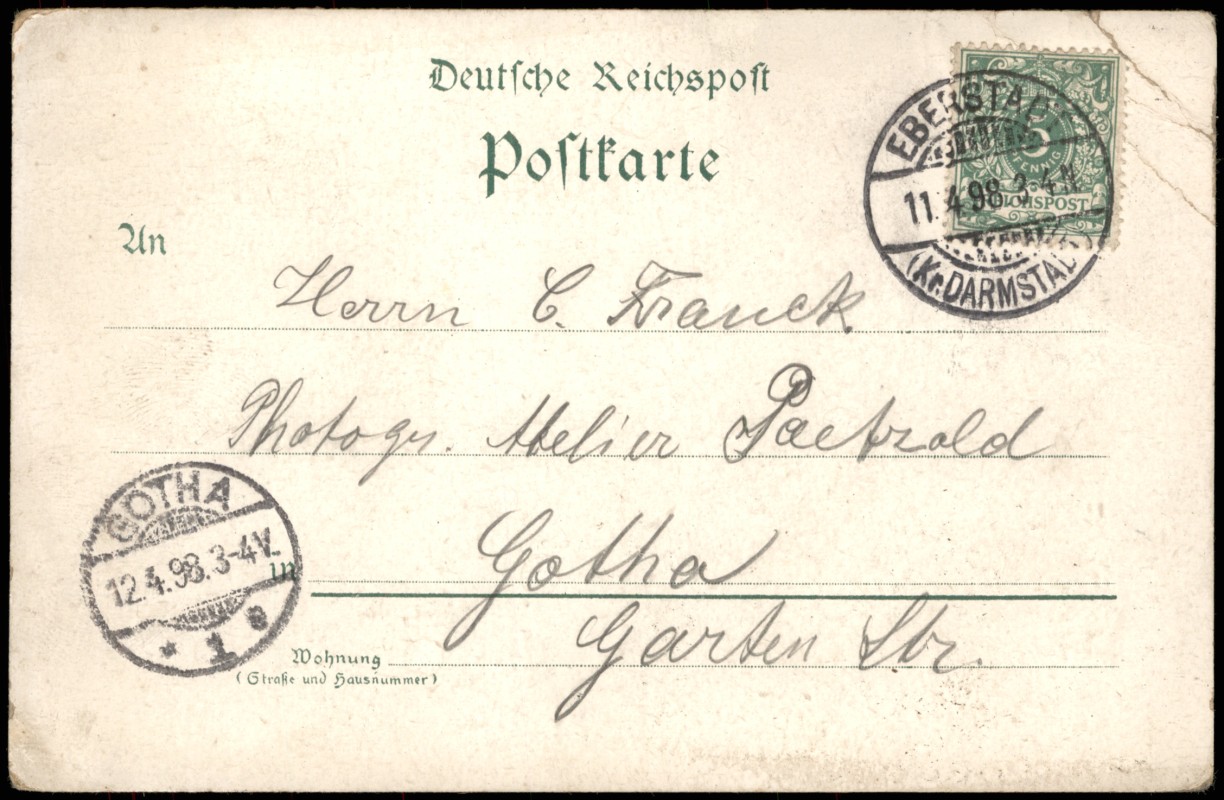 Deutsche Reichspost
Postkarte
5
PFENNIG
REICHSPOST
EBERSTADT
11.4.98.3-4N.
(Kr.DARMSTADT)
An
Herrn C. Franck
Photogr. Atelier Paetzold
in Gotha
Garten Str.
Wohnung
(Straße und Hausnummer)
GOTHA
12.4.98.3-4V.
* 1 e